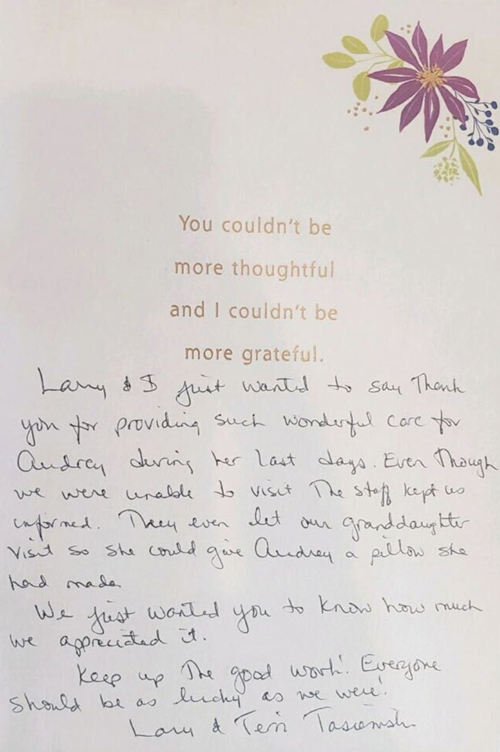 You couldn't be
more thoughtful
and I couldn't be
more grateful.
Larry & I just wanted to say Thank
you for providing such wonderful care for
Audrey during her last days. Even Though
we were unable to visit The staff kept us
informed. They even let our granddaughter
visit so she could give Audrey a pillow she
had made.
We just wanted you to know how much
we appreciated it.
Keep up The good work! Everyone
should be as lucky as we were!
Larry & Terri